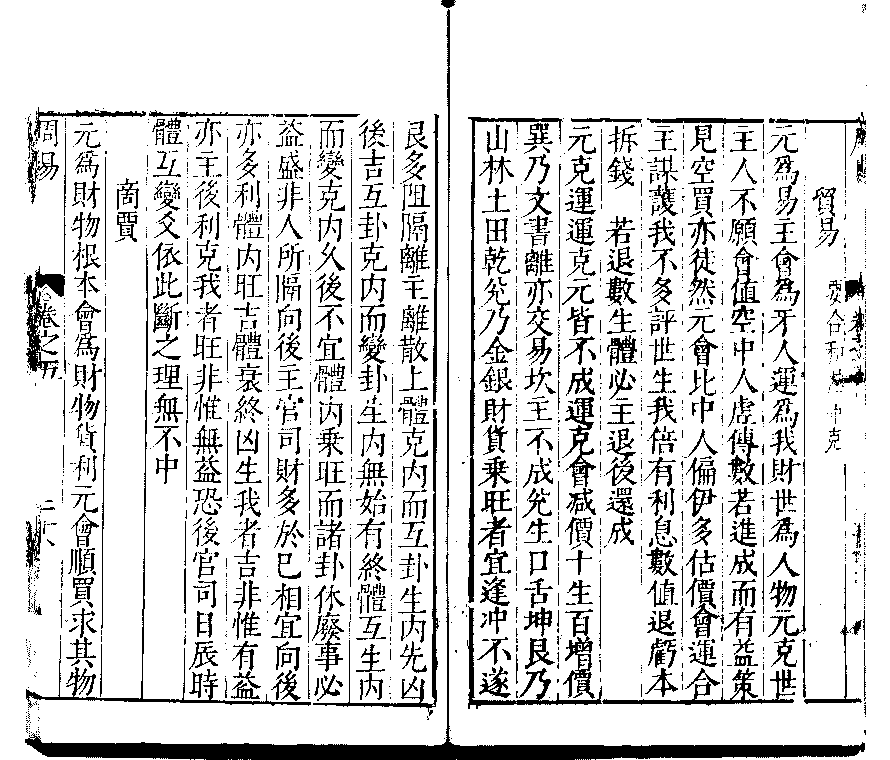 貿易　要合和　冲克
元為易主會為牙人運為我財世為人物元克世
主人不願會值空中人虛傳數若進成而有益策
見空買亦徒然元會比中人偏伊多估價會運合
主謀護我不多評世生我倍有利息數值退虧本
拆錢　若退數生體必主退後還成
元克運運克元皆不成運克會减價十生百增價
巽乃文書離亦交易坎主不成兊生口舌坤艮乃
山林土田乾兊乃金銀財貨乘旺者宜逢冲不遂
艮多阻隔離主離散上體克内而互卦生内先凶
後吉互卦克内而變卦生内無始有終體互生内
而變克内久後不宜體内乘旺而諸卦休廢事必
益盛非人所隔向後主官司財多於巳相宜向後
亦多利體内旺吉體衰終凶生我者吉非惟有益
亦主後利克我者旺非惟無益恐後官司日辰時
體互變爻依此斷之理無不中
商賈
元為財物根本會為財物貨利元會順買求其物
周易　卷之五　二十八